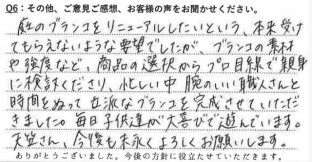 Q6：その他、ご意見ご感想、お客様の声をお聞かせください。
庭のブランコをリニューアルしたいという、本来受け
てもらえないような要望でしたが、ブランコの素材
や強度など、商品の選択からプロ目線で親身
に検討くださり、忙しい中 腕のいい職人さんと
時間をぬって立派なブランコを完成させていただ
きました。毎日子供達が大喜びで遊んでいます。
天笠さん、今後も末永くよろしくお願いします。
ありがとうございました。今後の方針に役立たせていただきます。